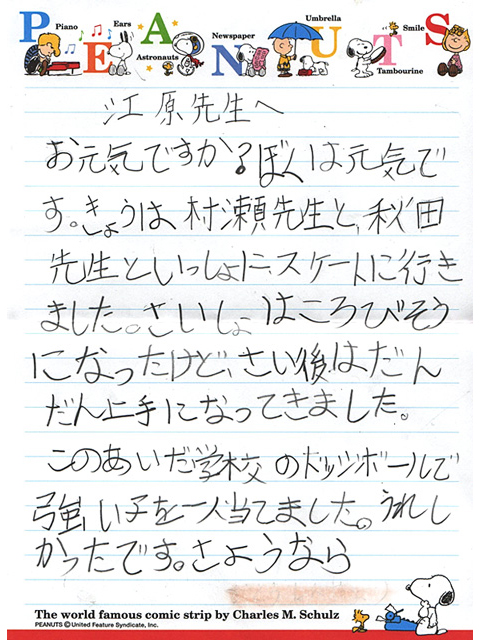 Piano Ears Astronauts Newspaper Umbrella Smile Tambourine
PEANUTS
江原先生へ
お元気ですか?ぼくは元気で
す。きょうは村瀬先生と、秋田
先生といっしょに、スケートに行き
ました。さいしょはころびそう
になったけど、さい後はだん
だん上手になってきました。
このあいだ学校のドッジボールで
強い子を一人当てました。うれし
かったです。さようなら
The world famous comic strip by Charles M. Schulz
PEANUTS © United Feature Syndicate, Inc.